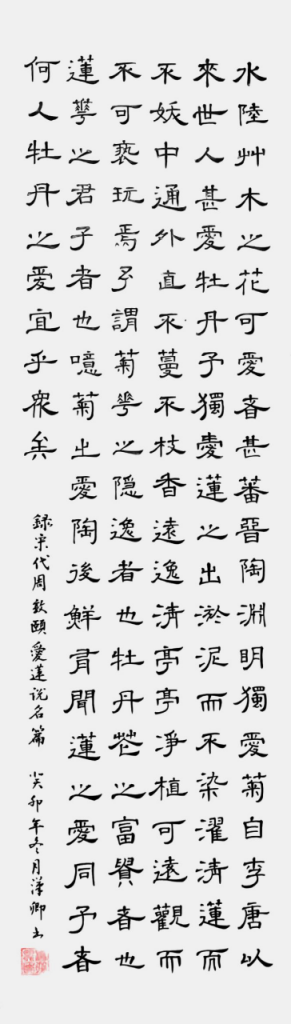 水陸艸木之花可愛者甚蕃晉陶淵明獨愛菊自李唐以
來世人甚愛牡丹予獨愛蓮之出淤泥而不染濯清蓮而
不妖中通外直不蔓不枝香遠逸清亭亭淨植可遠觀而
不可褻玩焉予謂菊華之隱逸者也牡丹花之富貴者也
蓮華之君子者也噫菊之愛陶後鮮有聞蓮之愛同予者
何人牡丹之愛宜乎衆矣
録宋代周敦頤愛蓮说名篇 癸卯年冬月漢卿书